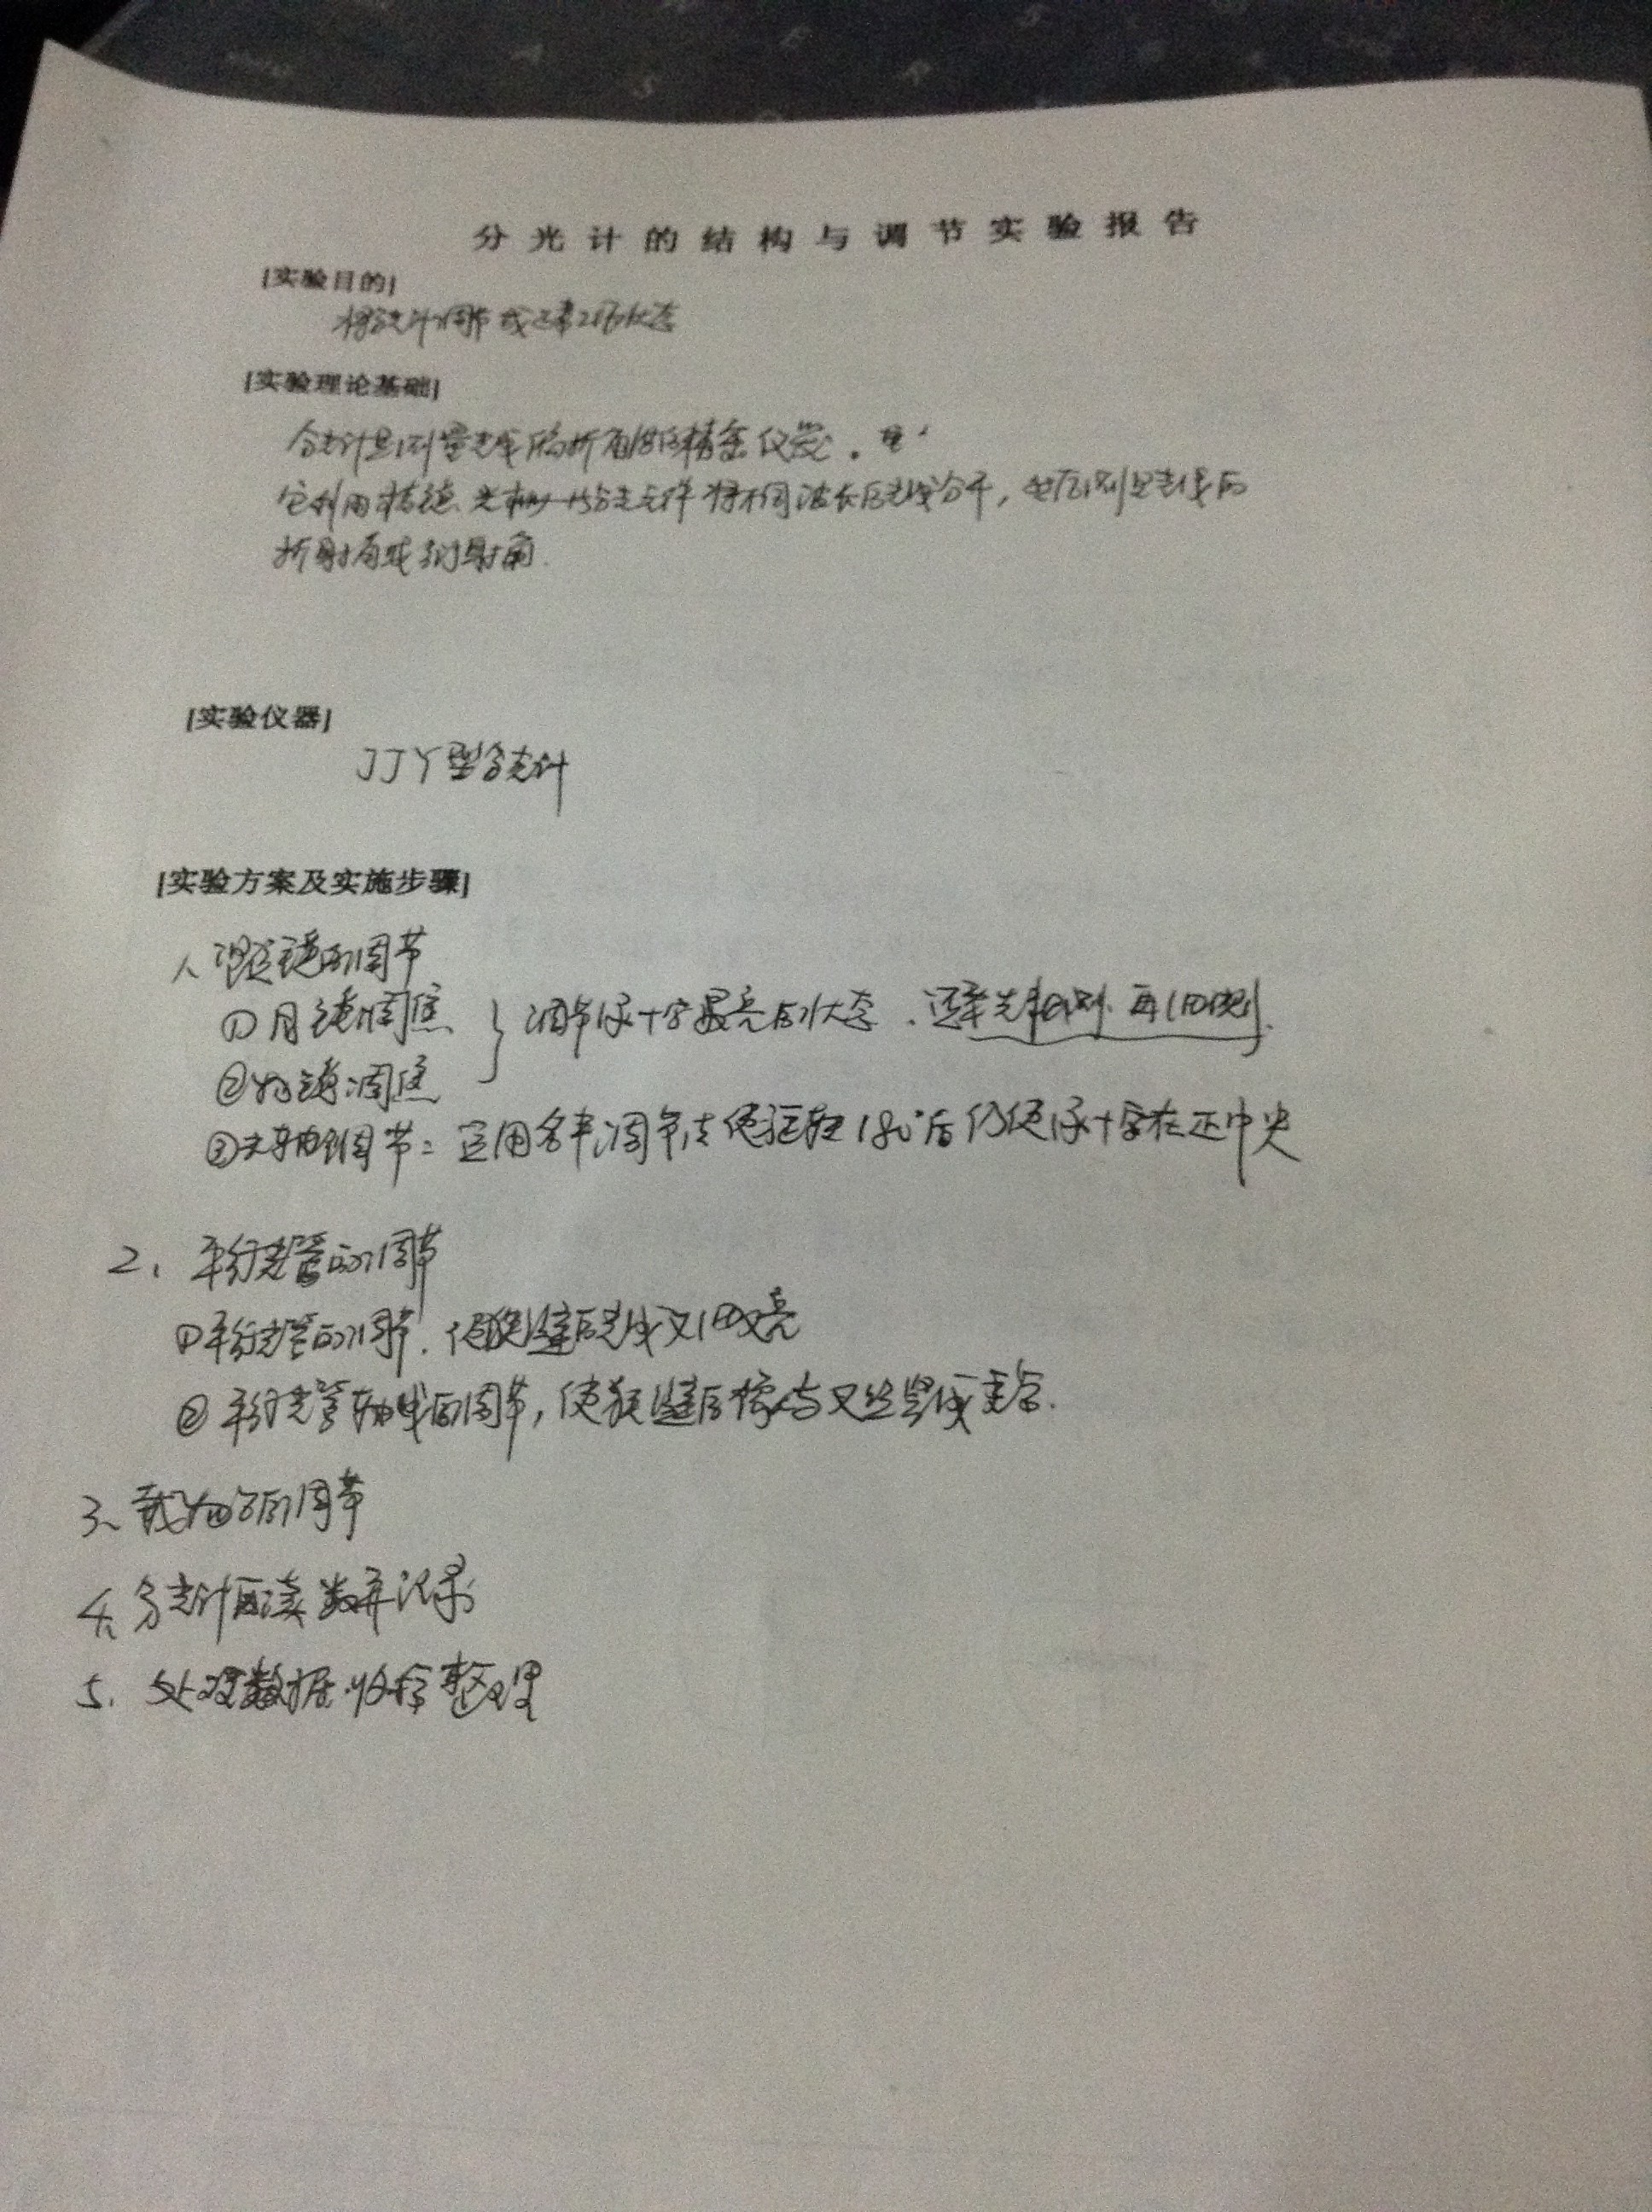 分光计的结构与调节实验报告
[实验目的]
将分光计调节成正常工作状态
[实验理论基础]
分光计是测量光线偏折角度的精密仪器.
它利用棱镜、光栅 分光元件将不同波长的光线分开, 光线的
折射角或衍射角.
[实验仪器]
JJY型分光计
[实验方案及实施步骤]
1、望远镜的调节
①目镜调焦
调节绿十字最亮的状态. 先 再
②物镜调焦
③光轴调节: 运用各半调节法使旋转180°后仍使绿十字在正中央
2、平行光管的调节
①平行光管的调节. 使狭缝的光线又细又亮
②平行光管轴线的调节, 使狭缝的像与叉丝竖线重合.
3、载物台的调节
4、分光计的读数并记录
5. 处理数据.收拾整理